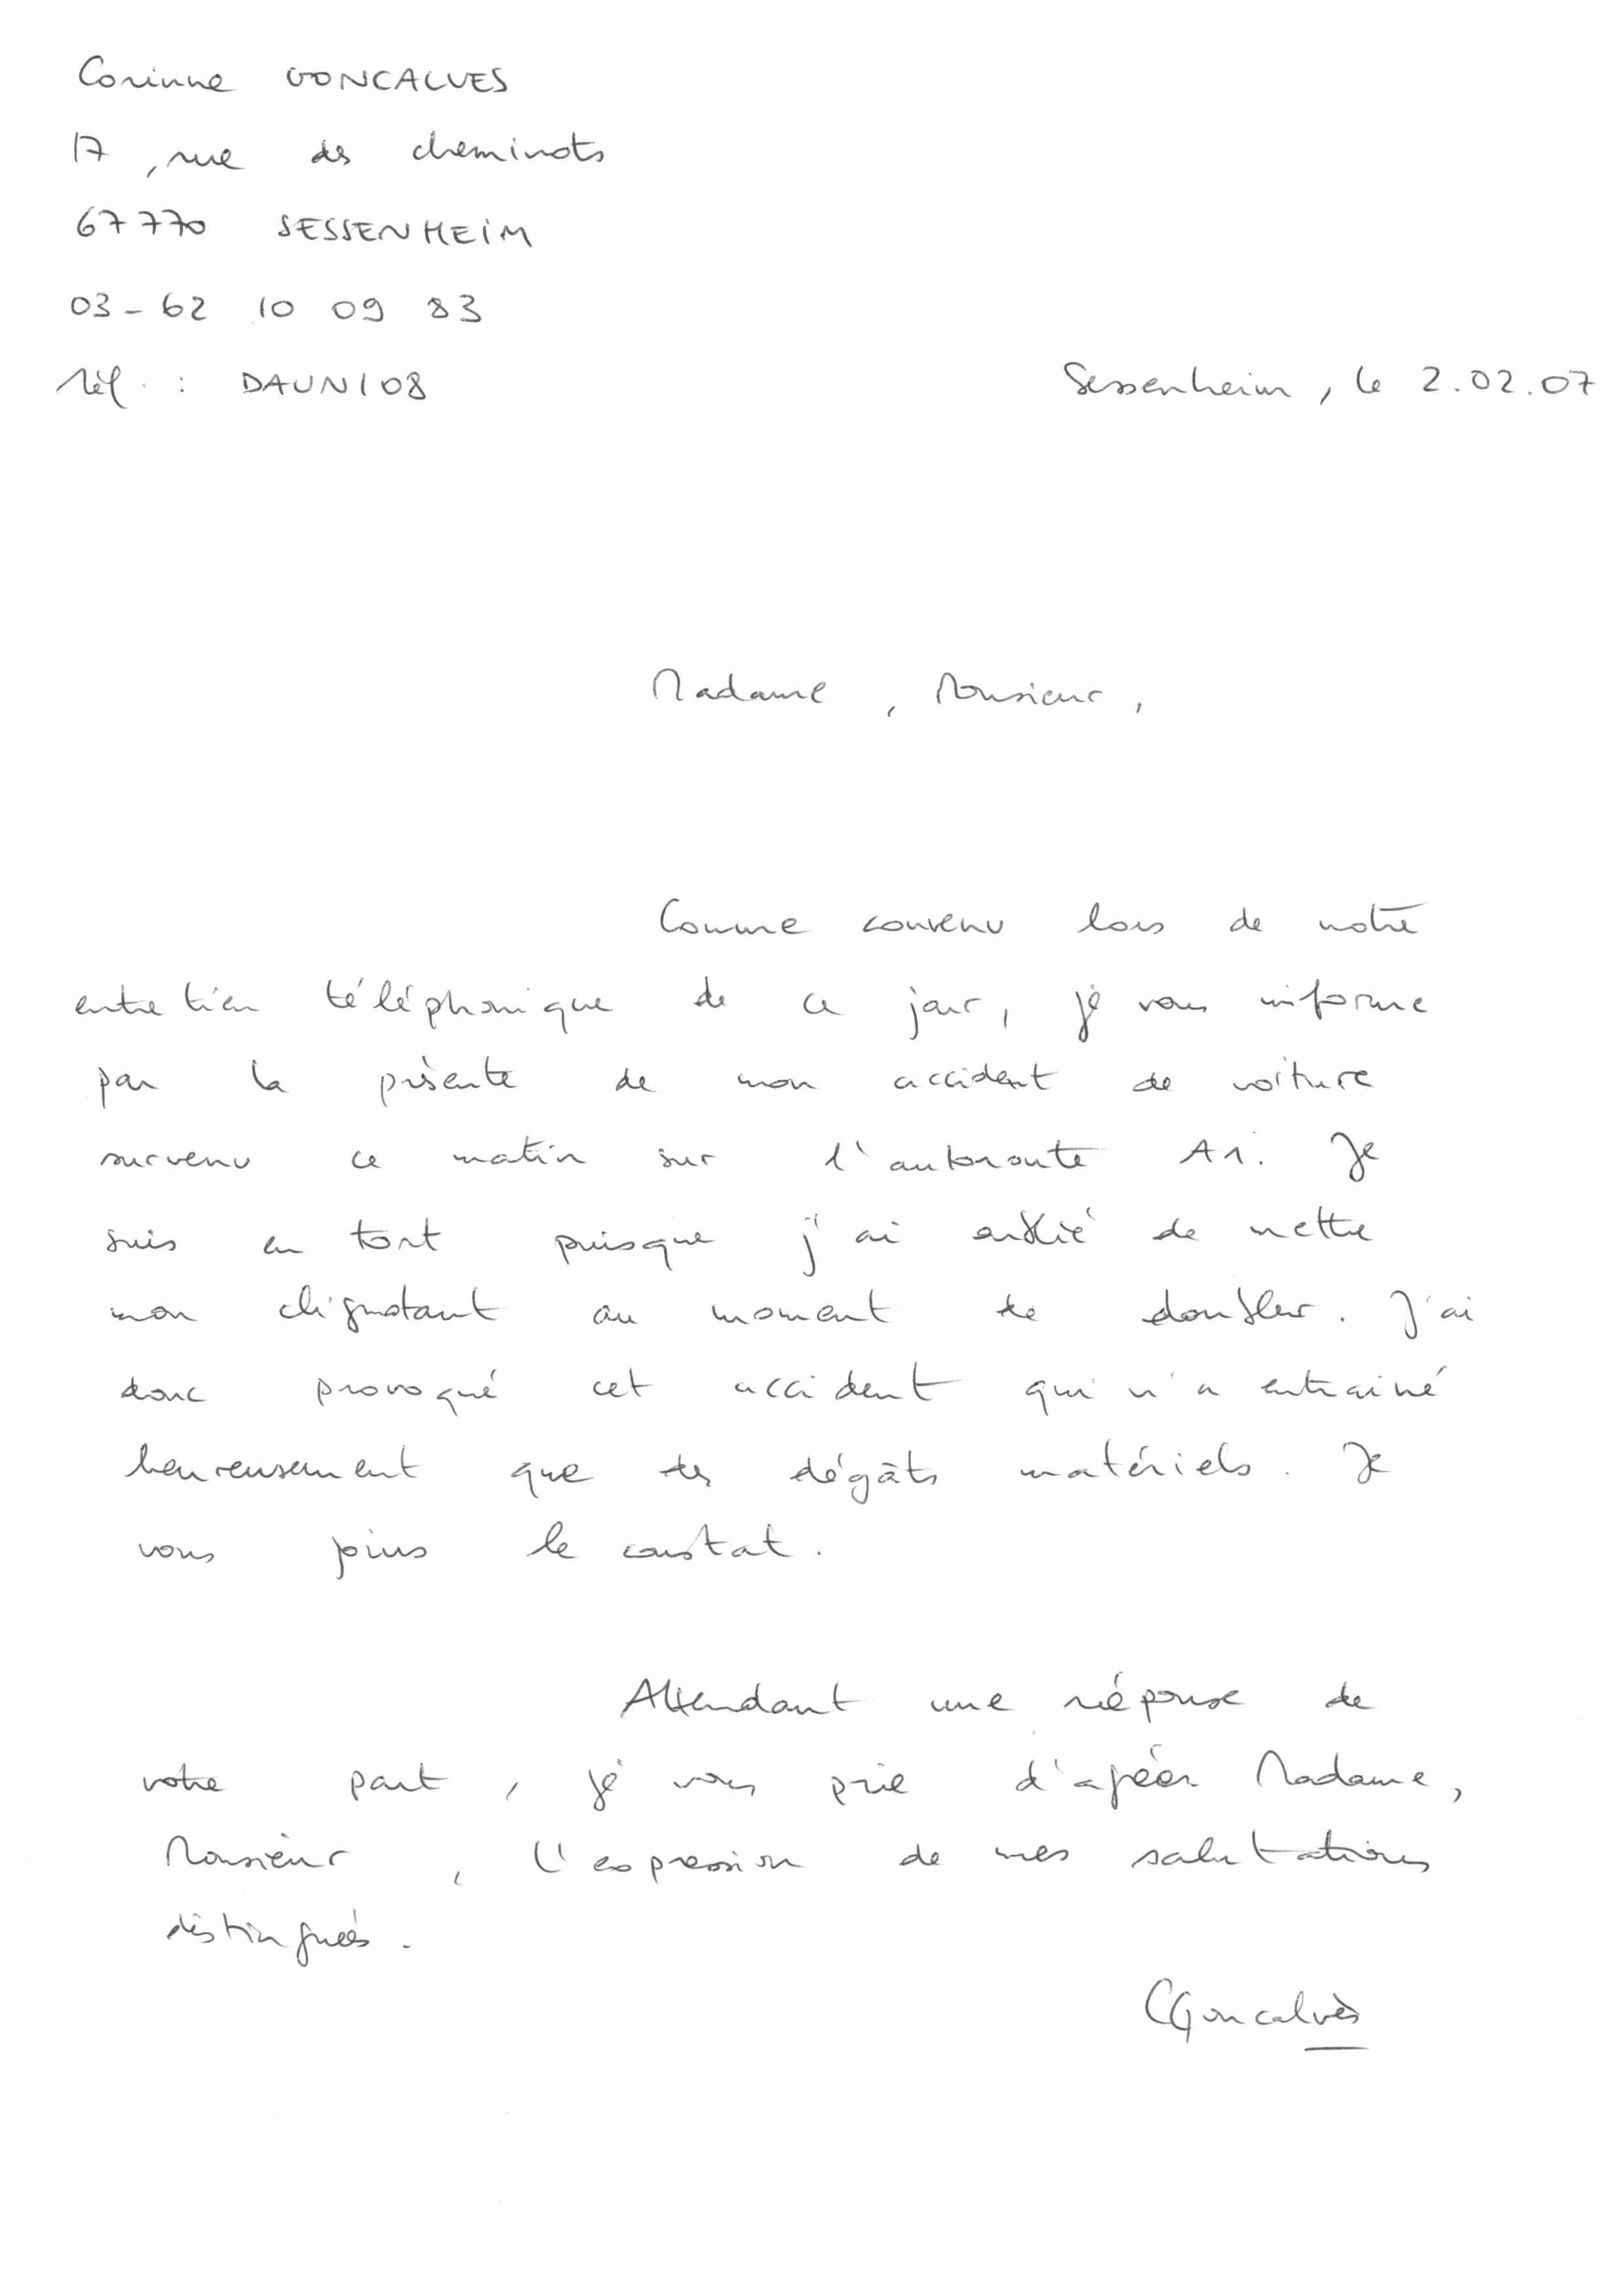 Corinne GONCALVES
17, rue des cheminots
67770 SESSENHEIM
03-62 10 09 83
Réf. : DAUN108
Sessenheim, le 2.02.07
Madame, Monsieur,
Comme convenu lors de notre
entretien téléphonique de ce jour, je vous informe
par la présente de mon accident de voiture
survenu ce matin sur l'autoroute A1. Je
suis en tort puisque j'ai oublié de mettre
mon clignotant au moment de doubler. J'ai
donc provoqué cet accident qui n'a entrainé
heureusement que des dégâts matériels. Je
vous joins le constat.
Attendant une réponse de
votre part, je vous prie d'agréer Madame,
Monsieur, l'expression de mes salutations
distinguées.
CGoncalvès